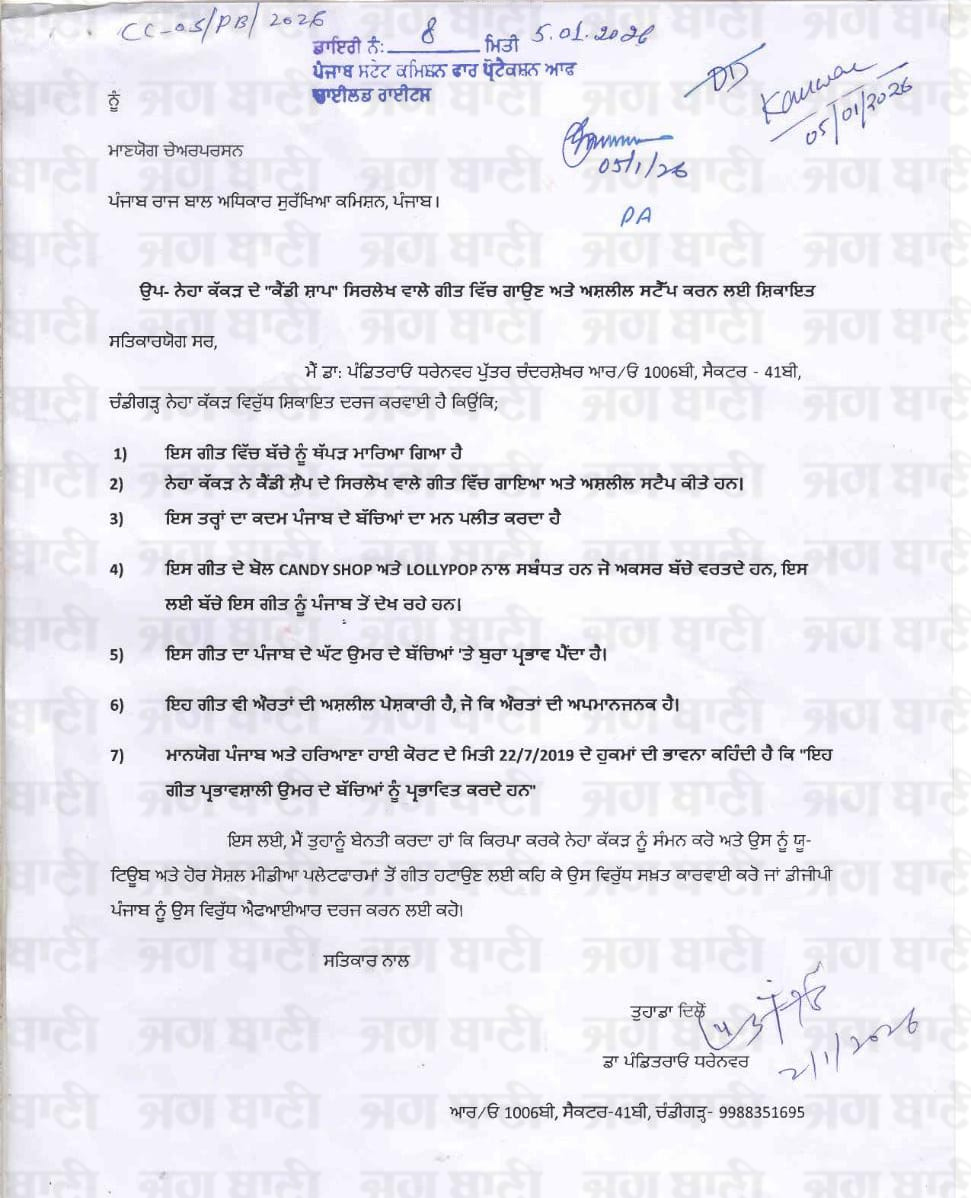 CC-05/PB/2026
ਡਾਇਰੀ ਨੰ: 8 ਮਿਤੀ 5.01.2026
ਪੰਜਾਬ ਸਟੇਟ ਕਮਿਸ਼ਨ ਫਾਰ ਪ੍ਰੋਟੈਕਸ਼ਨ ਆਫ
ਚਾਈਲਡ ਰਾਈਟਸ
DD
Kanwar
05/01/2026
05/1/26
PA
ਨੂੰ
ਮਾਣਯੋਗ ਚੇਅਰਪਰਸਨ
ਪੰਜਾਬ ਰਾਜ ਬਾਲ ਅਧਿਕਾਰ ਸੁਰੱਖਿਆ ਕਮਿਸ਼ਨ, ਪੰਜਾਬ।
ਉਪ- ਨੇਹਾ ਕੱਕੜ ਦੇ "ਕੈਂਡੀ ਸ਼ਾਪ" ਸਿਰਲੇਖ ਵਾਲੇ ਗੀਤ ਵਿੱਚ ਗਾਉਣ ਅਤੇ ਅਸ਼ਲੀਲ ਸਟੈੱਪ ਕਰਨ ਲਈ ਸ਼ਿਕਾਇਤ
ਸਤਿਕਾਰਯੋਗ ਸਰ,
ਮੈਂ ਡਾ: ਪੰਡਿਤਰਾਓ ਧਰੇਨਵਰ ਪੁੱਤਰ ਚੰਦਰਸ਼ੇਖਰ ਆਰ/ਓ 1006ਬੀ, ਸੈਕਟਰ - 41ਬੀ,
ਚੰਡੀਗੜ੍ਹ ਨੇਹਾ ਕੱਕੜ ਵਿਰੁੱਧ ਸ਼ਿਕਾਇਤ ਦਰਜ ਕਰਵਾਈ ਹੈ ਕਿਉਂਕਿ;
1) ਇਸ ਗੀਤ ਵਿੱਚ ਬੱਚੇ ਨੂੰ ਥੱਪੜ ਮਾਰਿਆ ਗਿਆ ਹੈ
2) ਨੇਹਾ ਕੱਕੜ ਨੇ ਕੈਂਡੀ ਸ਼ੌਪ ਦੇ ਸਿਰਲੇਖ ਵਾਲੇ ਗੀਤ ਵਿੱਚ ਗਾਇਆ ਅਤੇ ਅਸ਼ਲੀਲ ਸਟੈਪ ਕੀਤੇ ਹਨ।
3) ਇਸ ਤਰ੍ਹਾਂ ਦਾ ਕਦਮ ਪੰਜਾਬ ਦੇ ਬੱਚਿਆਂ ਦਾ ਮਨ ਪਲੀਤ ਕਰਦਾ ਹੈ
4) ਇਸ ਗੀਤ ਦੇ ਬੋਲ CANDY SHOP ਅਤੇ LOLLYPOP ਨਾਲ ਸਬੰਧਤ ਹਨ ਜੋ ਅਕਸਰ ਬੱਚੇ ਵਰਤਦੇ ਹਨ, ਇਸ
ਲਈ ਬੱਚੇ ਇਸ ਗੀਤ ਨੂੰ ਪੰਜਾਬ ਤੋਂ ਦੇਖ ਰਹੇ ਹਨ।
5) ਇਸ ਗੀਤ ਦਾ ਪੰਜਾਬ ਦੇ ਘੱਟ ਉਮਰ ਦੇ ਬੱਚਿਆਂ 'ਤੇ ਬੁਰਾ ਪ੍ਰਭਾਵ ਪੈਂਦਾ ਹੈ।
6) ਇਹ ਗੀਤ ਵੀ ਔਰਤਾਂ ਦੀ ਅਸ਼ਲੀਲ ਪੇਸ਼ਕਾਰੀ ਹੈ, ਜੋ ਕਿ ਔਰਤਾਂ ਦੀ ਅਪਮਾਨਜਨਕ ਹੈ।
7) ਮਾਨਯੋਗ ਪੰਜਾਬ ਅਤੇ ਹਰਿਆਣਾ ਹਾਈ ਕੋਰਟ ਦੇ ਮਿਤੀ 22/7/2019 ਦੇ ਹੁਕਮਾਂ ਦੀ ਭਾਵਨਾ ਕਹਿੰਦੀ ਹੈ ਕਿ "ਇਹ
ਗੀਤ ਪ੍ਰਭਾਵਸ਼ਾਲੀ ਉਮਰ ਦੇ ਬੱਚਿਆਂ ਨੂੰ ਪ੍ਰਭਾਵਿਤ ਕਰਦੇ ਹਨ"
ਇਸ ਲਈ, ਮੈਂ ਤੁਹਾਨੂੰ ਬੇਨਤੀ ਕਰਦਾ ਹਾਂ ਕਿ ਕਿਰਪਾ ਕਰਕੇ ਨੇਹਾ ਕੱਕੜ ਨੂੰ ਸੰਮਨ ਕਰੋ ਅਤੇ ਉਸ ਨੂੰ ਯੂ-
ਟਿਊਬ ਅਤੇ ਹੋਰ ਸੋਸ਼ਲ ਮੀਡੀਆ ਪਲੇਟਫਾਰਮਾਂ ਤੋਂ ਗੀਤ ਹਟਾਉਣ ਲਈ ਕਹਿ ਕੇ ਉਸ ਵਿਰੁੱਧ ਸਖ਼ਤ ਕਾਰਵਾਈ ਕਰੋ ਜਾਂ ਡੀਜੀਪੀ
ਪੰਜਾਬ ਨੂੰ ਉਸ ਵਿਰੁੱਧ ਐਫਆਈਆਰ ਦਰਜ ਕਰਨ ਲਈ ਕਹੋ।
ਸਤਿਕਾਰ ਨਾਲ
ਤੁਹਾਡਾ ਦਿਲੋਂ
2/1/2026
ਡਾ ਪੰਡਿਤਰਾਓ ਧਰੇਨਵਰ
ਆਰ/ਓ 1006ਬੀ, ਸੈਕਟਰ-41ਬੀ, ਚੰਡੀਗੜ੍ਹ- 9988351695
ਜਗ ਬਾਣੀ